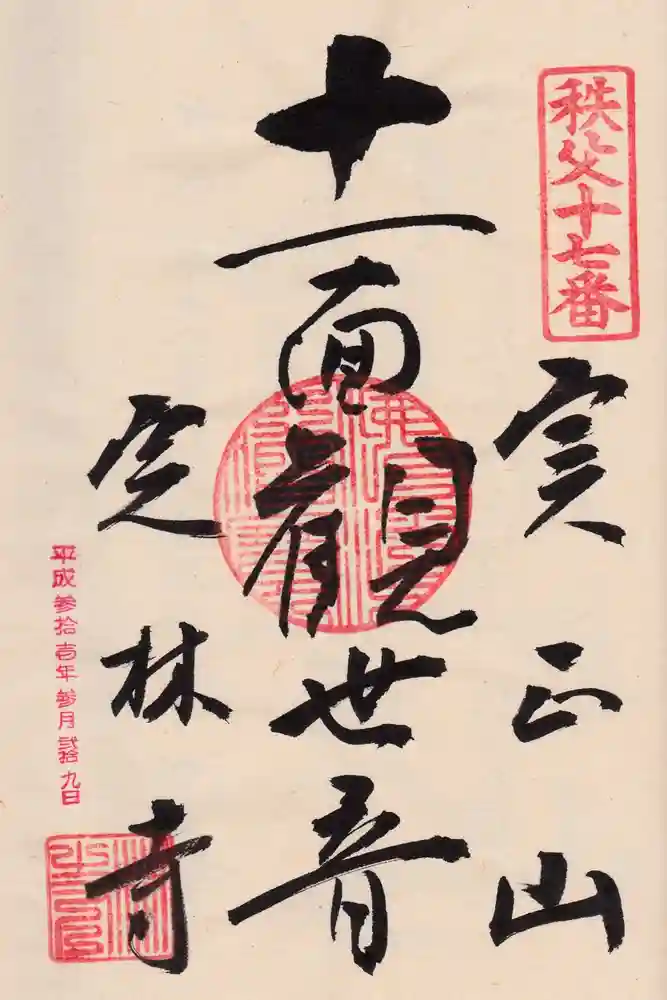 秩父十七番
実正山
十一面觀世音
定林寺
平成参拾壱年参月弐拾九日